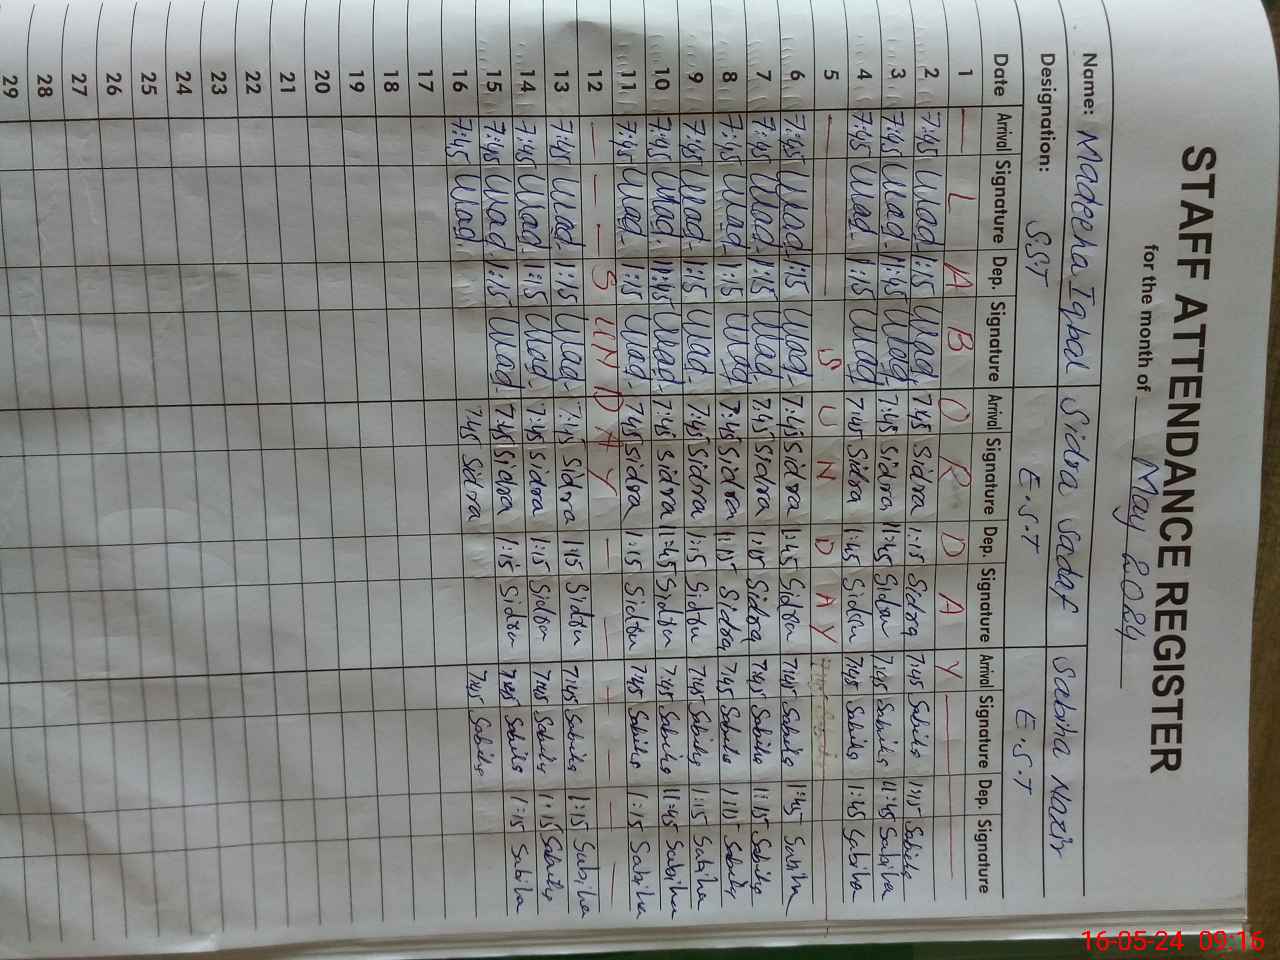 STAFF ATTENDANCE REGISTER
for the month of May 2024
Name: Madeeha Iqbal Sidra Sadaf Sabiha Nazir
Designation: SST E.S.T E.S.T
Date Arrival Signature Dep. Signature Arrival Signature Dep. Signature Arrival Signature Dep. Signature
1 — L A B O R D A Y —
2 7:45 1:15 7:45 Sidra 1:15 Sidra 7:45 Sabiha 1:15 Sabiha
3 7:45 11:45 7:45 Sidra 11:45 Sidra 7:45 Sabiha 11:45 Sabiha
4 7:45 1:15 7:45 Sidra 1:45 Sidra 7:45 Sabiha 1:45 Sabiha
5 — S U N D A Y —
6 7:45 1:15 7:45 Sidra 1:45 Sidra 7:45 Sabiha 1:45 Sabiha
7 7:45 1:15 7:45 Sidra 1:15 Sidra 7:45 Sabiha 1:15 Sabiha
8 7:45 1:15 7:45 Sidra 1:15 Sidra 7:45 Sabiha 1:15 Sabiha
9 7:45 1:15 7:45 Sidra 1:15 Sidra 7:45 Sabiha 1:15 Sabiha
10 7:45 11:45 7:45 Sidra 11:45 Sidra 7:45 Sabiha 11:45 Sabiha
11 7:45 1:15 7:45 Sidra 1:15 Sidra 7:45 Sabiha 1:15 Sabiha
12 — — — S U N D A Y — — — — — —
13 7:45 1:15 7:45 Sidra 1:15 Sidra 7:45 Sabiha 1:15 Sabiha
14 7:45 1:15 7:45 Sidra 1:15 Sidra 7:45 Sabiha 1:15 Sabiha
15 7:45 1:15 7:45 Sidra 1:15 Sidra 7:45 Sabiha 1:15 Sabiha
16 7:45 7:45 Sidra 7:45 Sabiha
17
18
19
20
21
22
23
24
25
26
27
28
29
16-05-24 09:16